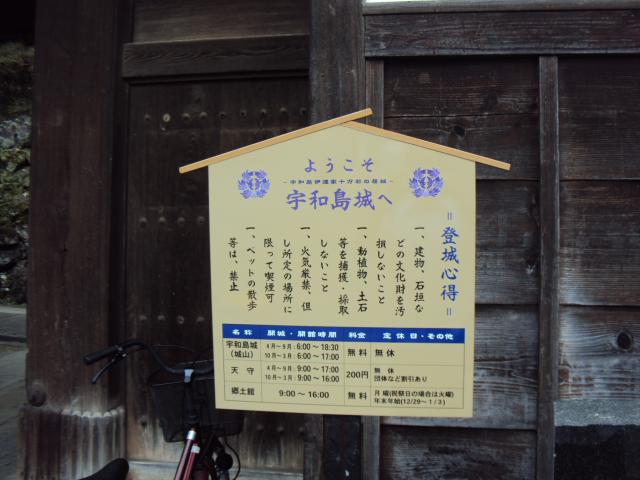 ようこそ
－宇和島伊達家十万石の居城－
宇和島城へ
＝登城心得＝
一、建物、石垣な
どの文化財を汚
損しないこと
一、動植物、土石
等を捕獲・採取
しないこと
一、火気厳禁、但
し所定の場所に
限って喫煙可
一、ペットの散歩
等は、禁止
名称 開城・開館時間 料金 定休日・その他
宇和島城(城山) 4月～9月:6:00～18:30 無料 無休
10月～3月:6:00～17:00
天守 4月～9月:9:00～17:00 200円 無休
10月～3月:9:00～16:00 団体など割引あり
郷土館 9:00～16:00 無料 月曜(祝祭日の場合は火曜)
年末年始(12/29～1/3)